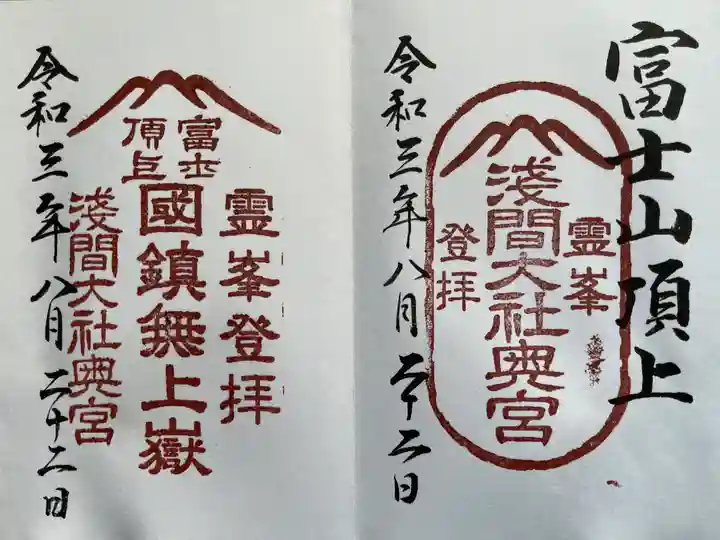 富士山頂上
霊峯
登拝
淺間大社奥宮
令和三年八月二十二日
富士
頂上
霊峯登拝
國鎮無上嶽
淺間大社奥宮
令和三年八月二十二日